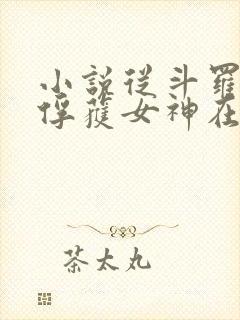 小說從斗羅
俘獲女神在
茶太丸